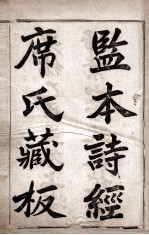 監本詩經
席氏藏板